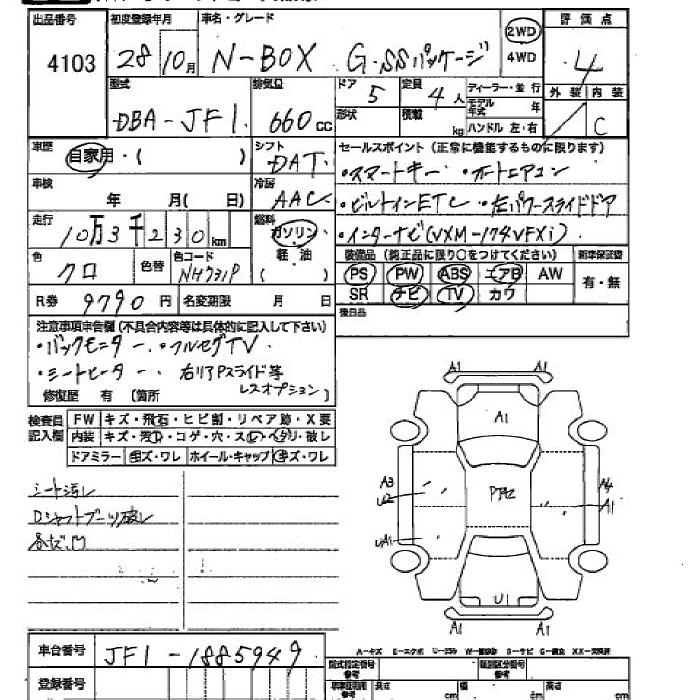 出品番号 初度登録年月 車名・グレード 評価点
4103 28 10月 N-BOX G・SSパッケージ 2WD 4WD 4
型式 排気量 ドア 定員 ディーラー・並行 外装 内装
DBA-JF1 660cc 5 4人 モデル年式 年 C
形状 積載 kg ハンドル 左・右
車歴 自家用・( ) シフト DAT セールスポイント (正常に機能するものに限ります)
・スマートキー ・オートエアコン
車検 年 月( 日) 冷房 AAC ・ビルトインETC ・左パワースライドドア
走行 10万3千230km 燃料 ガソリン ・インターナビ(VXM-174VFXi)
軽油 ( ) 装備品 (純正品に限り○をつけてください) 新車保証書
色 クロ 色替 色コード NH731P PS PW ABS エアB AW 有・無
R券 9790円 名変期限 月 日 SR ナビ TV カワ
後日品
注意事項申告欄 (不具合内容等は具体的に記入して下さい)
・バックモニター ・フルセグTV
・シートヒーター ・右リアPスライド等
レスオプション
修復歴 有 (箇所 )
検査員記入欄 FW キズ・飛石・ヒビ割・リペア跡・X要
内装 キズ・汚レ・コゲ・穴・スレ・ヘタリ・破レ
ドアミラー キズ・ワレ ホイール・キャップ キズ・ワレ
シート汚レ
Dシャフトブーツ破レ
A1 A1
A1
A3 A4
U2 A1
UA1
U1
A1 A1
A-キズ E-エクボ U-凹ミ W-補修跡 S-サビ C-腐食 XX-交換済
車台番号 JF1-1885949 型式指定番号 参考 類別区分番号 参考
登録番号 長さ cm 幅 cm 高さ cm